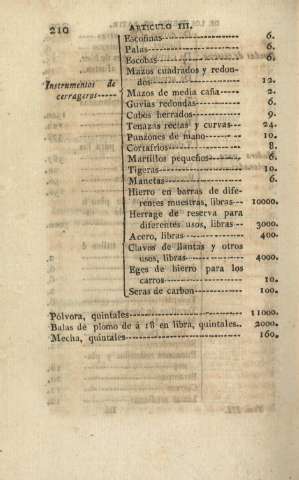 210 ARTICULO III.
Escofinas 6.
Palas 6.
Escobas 6.
Mazos cuadrados y redon-
dos 12.
Instrumentos de
cerrageros
Mazos de media caña 2.
Guvias redondas 6.
Cubos herrados 9.
Tenazas rectas y curvas 24.
Punzones de mano 10.
Cortafrios 8.
Martillos pequeños 6.
Tigeras 10.
Manetas 6.
Hierro en barras de dife-
rentes muestras, libras 10000.
Herrage de reserva para
diferentes usos, libras 3000.
Acero, libras 400.
Clavos de llantas y otros
usos, libras 4000.
Eges de hierro para los
carros 10.
Seras de carbon 100.
Pólvora, quintales 11000.
Balas de plomo de á 18 en libra, quintales.. 2000.
Mecha, quintales 160.